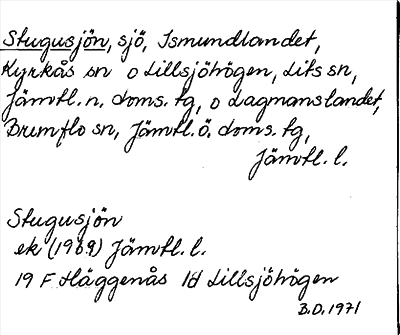 Stugusjön, sjö, Ismundlandet,
Kyrkås sn o Lillsjöhögen, Lits sn,
Jämtl. n. doms. tg, o Lagmanslandet,
Brunflo sn, Jämtl. Ö. doms. tg,
Jämtl. l.
Stugusjön
ek (1969) Jämtl. l.
19 F Häggenås 1d Lillsjöhögen
B.D. 1971